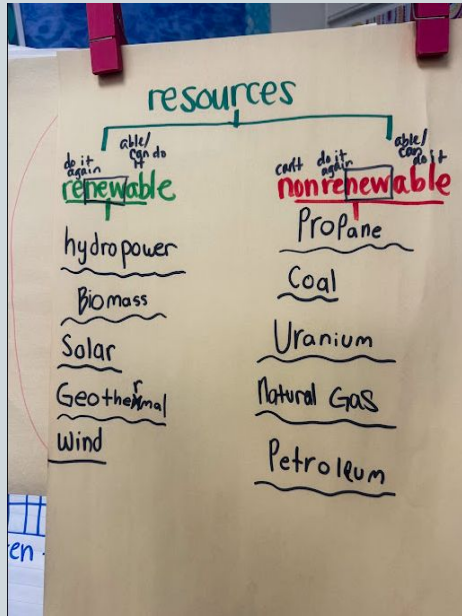 resources
do it again
able/ can do it
renewable
hydropower
Biomass
Solar
Geothermal
Wind
can't
do it again
able/ can do it
nonrenewable
Propane
Coal
Uranium
Natural Gas
Petroleum
en